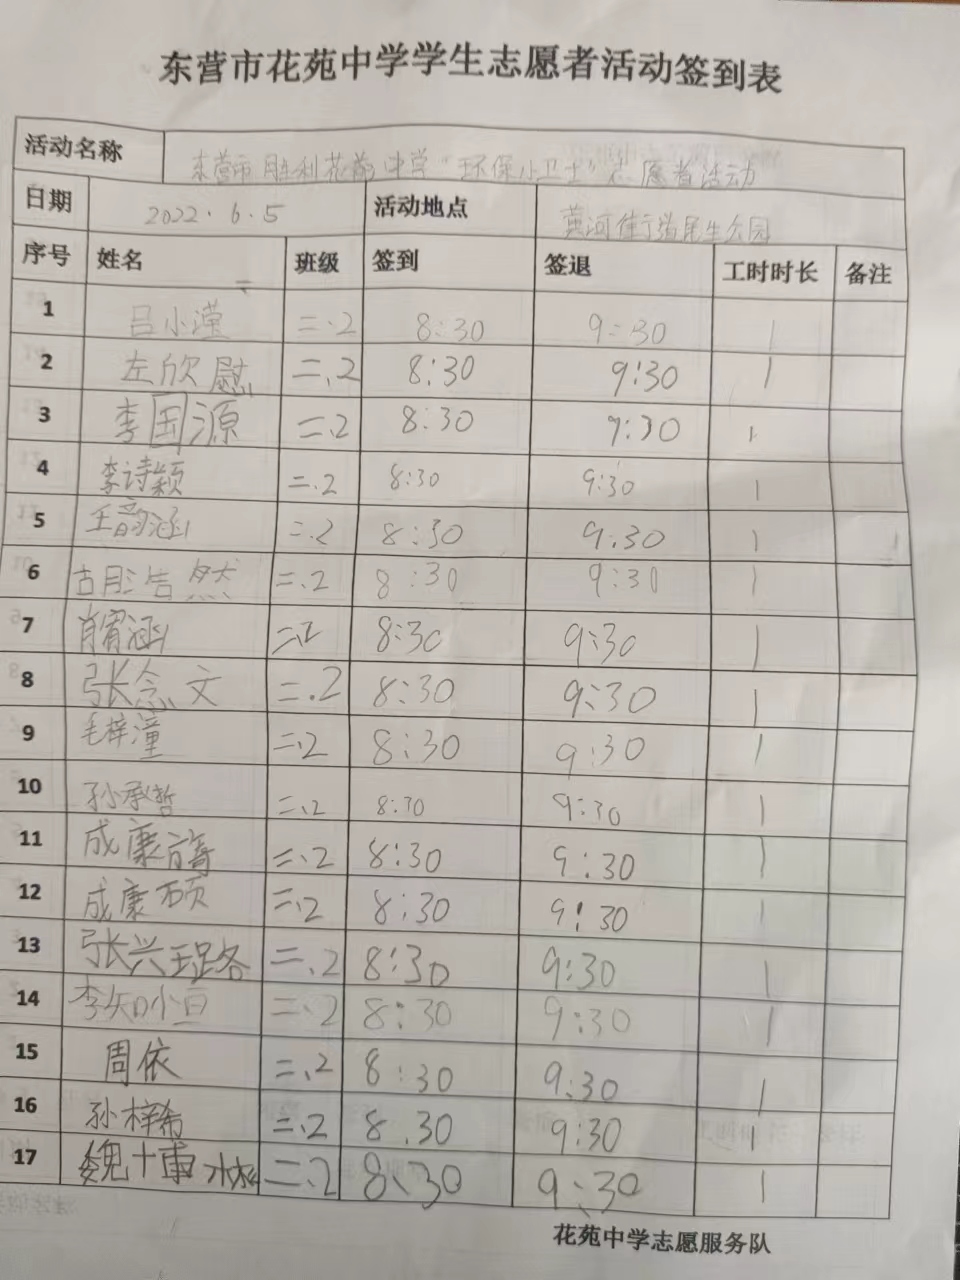 东营市花苑中学学生志愿者活动签到表
活动名称 东营市胜利花苑中学"环保小卫士"志愿者活动
日期 2022.6.5 活动地点 黄河街道尾生公园
序号 姓名 班级 签到 签退 工时时长 备注
1 吕小滢 二.2 8:30 9:30 1
2 左欣慰 二.2 8:30 9:30 1
3 李国源 二.2 8:30 9:30 1
4 李诗颖 二.2 8:30 9:30 1
5 王韵涵 二.2 8:30 9:30 1
6 古月浩然 二.2 8:30 9:30 1
7 肖宥涵 二.2 8:30 9:30 1
8 张念文 二.2 8:30 9:30 1
9 毛梓潼 二.2 8:30 9:30 1
10 孙承哲 二.2 8:30 9:30 1
11 成康 二.2 8:30 9:30 1
12 成康硕 二.2 8:30 9:30 1
13 张兴璐 二.2 8:30 9:30 1
14 李知恒 二.2 8:30 9:30 1
15 周依 二.2 8:30 9:30 1
16 孙梓希 二.2 8.30 9:30 1
17 魏 二.2 8:30 9:30 1
花苑中学志愿服务队